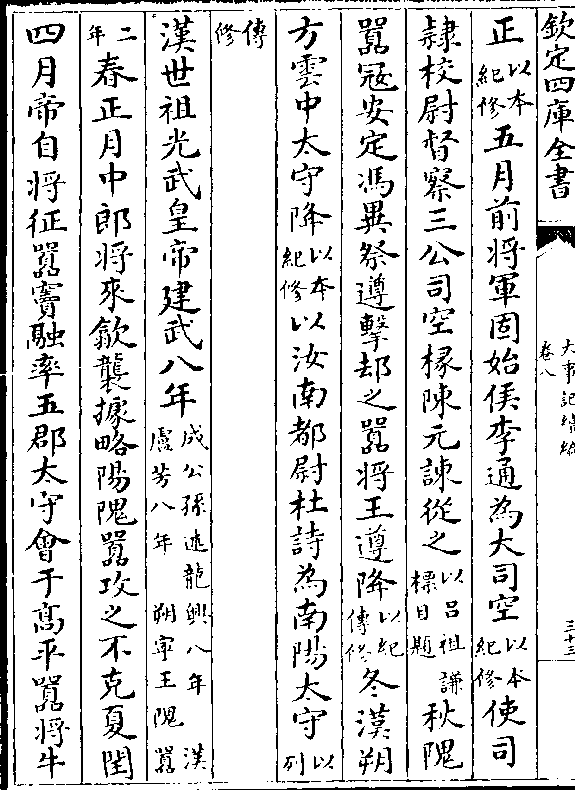 欽定四庫全書
大事記續編
卷八
三十三
正以本紀修五月前將軍固始侯李通為大司空以本紀修使司
隷校尉督察三公司空椽陳元諫從之以吕祖謙標目題秋隗
囂寇安定馮異祭遵擊却之囂將王遵降以紀傳修冬漢朔
方雲中太守降以本紀修以汝南都尉杜詩為南陽太守以列
傳修
漢世祖光武皇帝建武八年成公孫述龍興八年漢盧芳八年朔寧王隗囂
二年春正月中郎將來歙襲據略陽隗囂攻之不克夏閏
四月帝自將征囂竇融率五郡太守會于髙平囂將牛